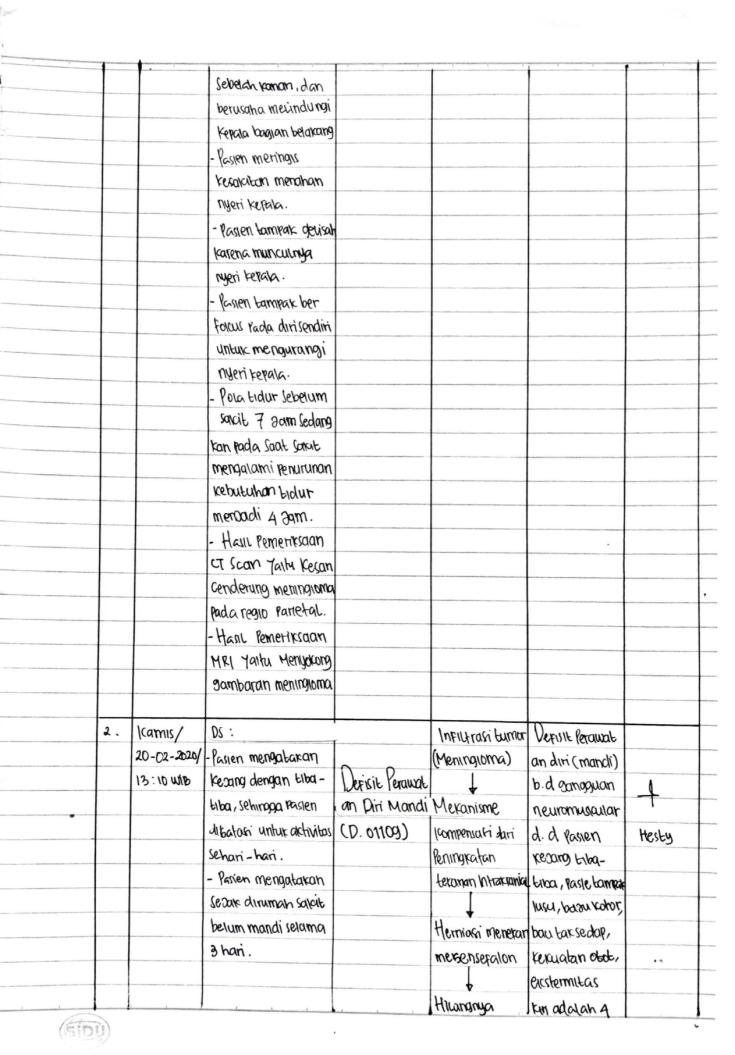 Sebelah kanan, dan
berusaha melindungi
kepala bagian belakang
- Pasien meringis
kesakitan menahan
nyeri kepala.
- Pasien tampak gelisah
karena munculnya
nyeri kepala.
- Pasien tampak ber
fokus pada diri sendiri
untuk mengurangi
nyeri kepala.
- Pola tidur sebelum
sakit 7 jam sedang
kan pada saat sakit
mengalami penurunan
kebutuhan tidur
menjadi 4 jam.
- Hasil Pemeriksaan
CT Scan Yaitu Kesan
Cenderung meningioma
pada regio Parietal.
- Hasil Pemeriksaan
MRI Yaitu Menyokong
gambaran meningioma
2.
Kamis/
20-02-2020/
13:10 WIB
DS :
- Pasien mengatakan
kejang dengan tiba-
tiba, sehingga Pasien
dibatasi untuk aktivitas
sehari-hari.
- Pasien mengatakan
sejak dirumah sakit
belum mandi selama
3 hari.
Defisit Perawat
an Diri Mandi
(D. 0110g)
Infiltrasi tumor
(Meningioma)
↓
Mekanisme
kompensasi dari
Peningkatan
tekanan Intrakranial
↓
Herniasi menekan
mesensefalon
↓
Hilangnya
Defisit Perawat
an diri (mandi)
b.d gangguan
neuromuskular
d.d Pasien
kejang tiba-
tiba, Pasie tampak
lusu, baju kotor,
bau tak sedap,
kekuatan otot,
ekstermitas
km adalah 4
Hesty
SIDU